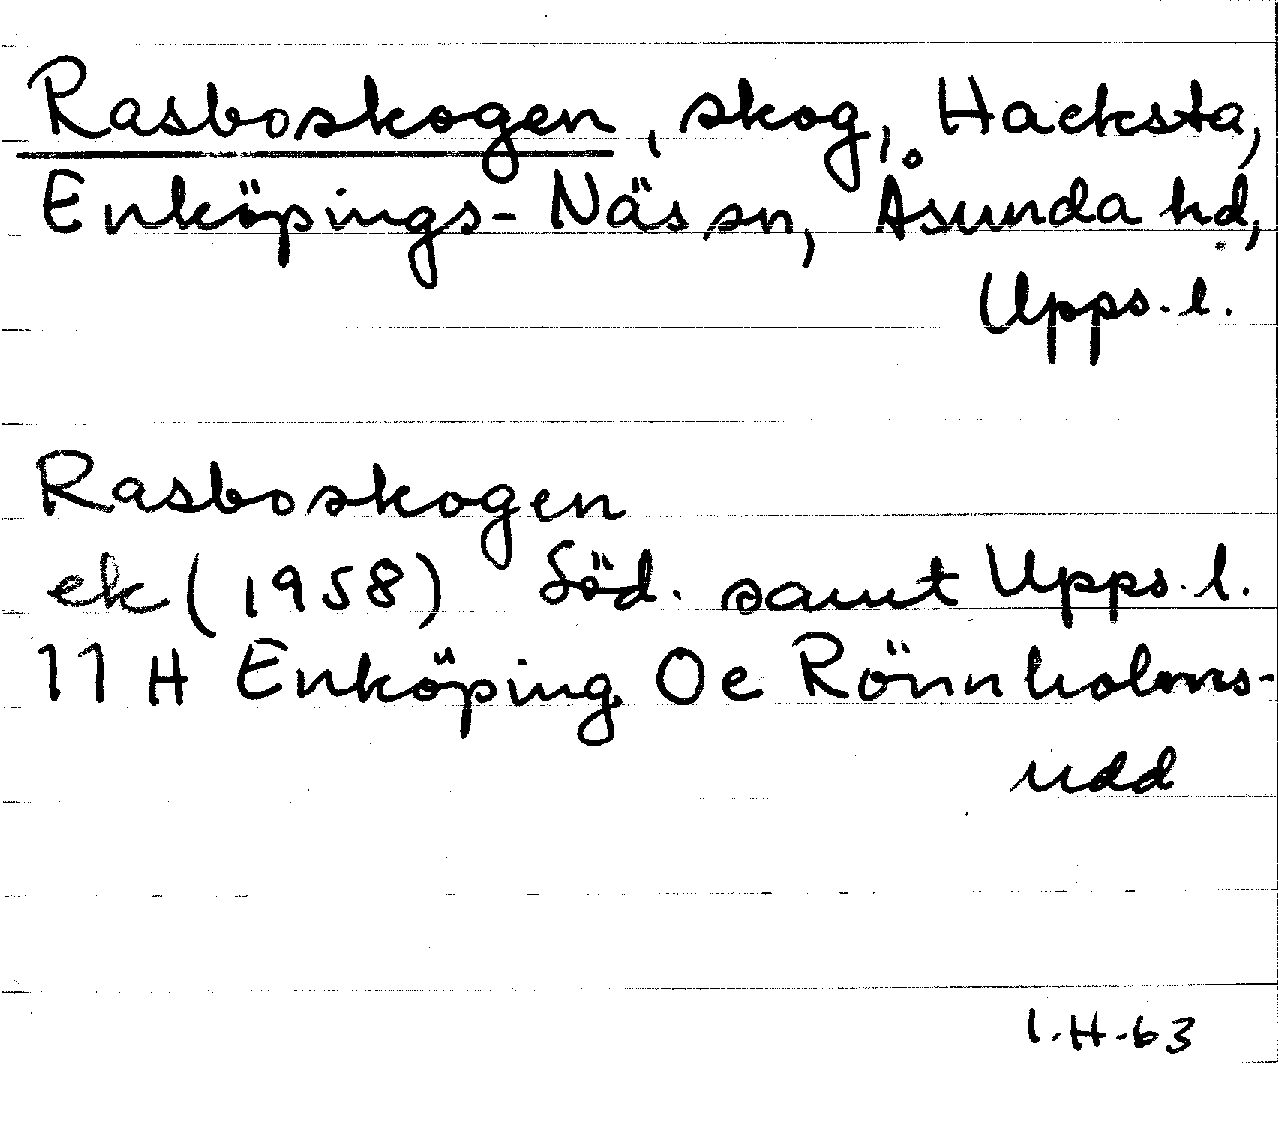 Rasboskogen, skog, Hacksta,
Enköpings-Näs sn, Åsunda hd,
Upps. l.
Rasboskogen
ek (1958) Söd. samt Upps. l.
11 H Enköping Oe Rönnholms-
udd
I.H-63